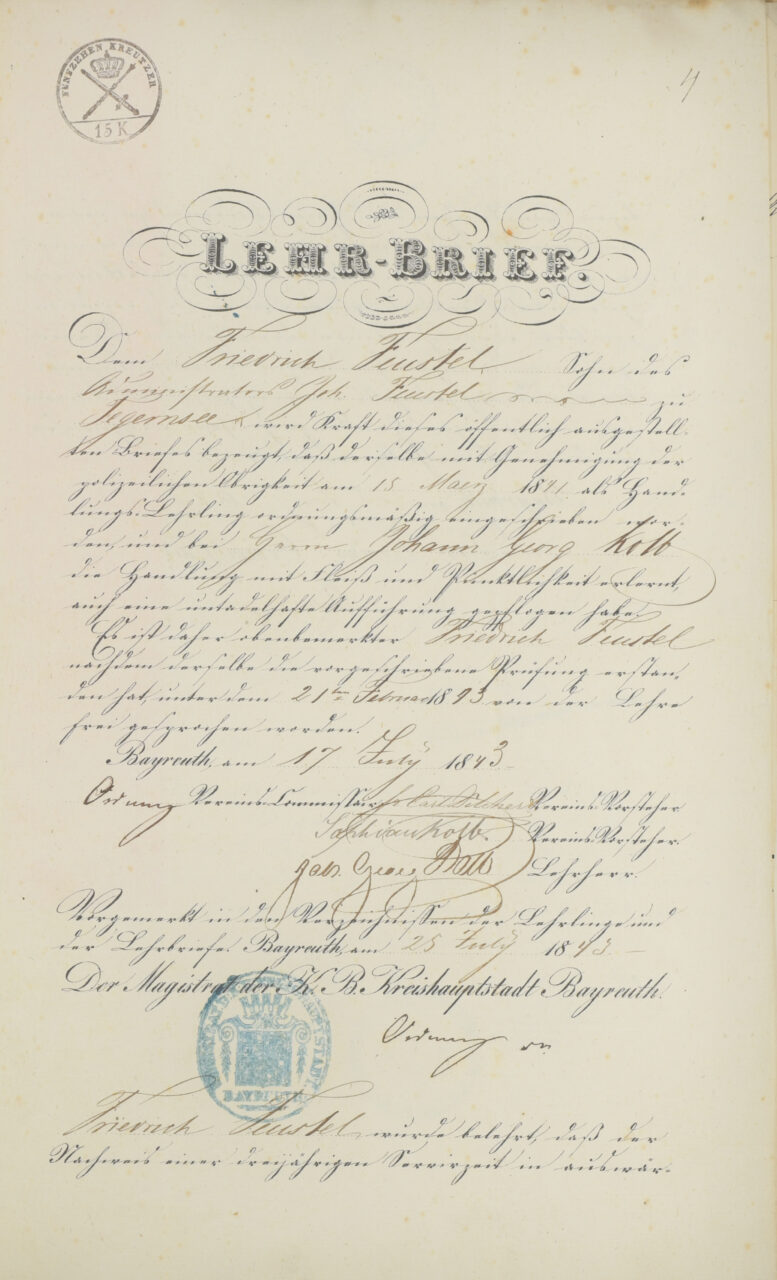 FÜNFZEHEN KREUTZER
15 K
4
LEHR-BRIEF.
Dem Friedrich Feustel Sohn des
Administrators Joh. Feustel zu
Tegernsee wird Kraft dieses öffentlich ausgestell-
ten Briefes bezeugt, daß derselbe mit Genehmigung der
polizeilichen Obrigkeit am 15 Maerz 1841 als Hand-
lungs-Lehrling ordnungsmäßig eingeschrieben wor-
den, und bei Herrn Johann Georg Kolb
die Handlung mit Fleiß und Pünktlichkeit erlernt,
auch eine untadelhafte Aufführung gepflogen habe.
Es ist daher obenbemerkter Friedrich Feustel
nachdem derselbe die vorgeschriebene Prüfung erstan-
den hat, unter dem 21ten Februar 1843 von der Lehre
frei gesprochen worden.
Bayreuth, am 17 July 1843
Vereins-Commissair Vereins-Vorsteher
Kolb. Vereins-Vorsteher.
Joh. Georg Kolb Lehrherr.
Vorgemerkt in den Verzeichnissen der Lehrlinge und
der Lehrbriefe. Bayreuth, am 25 July 1843
Der Magistrat der K. B. Kreishauptstadt Bayreuth.
BAYREUTH
Friedrich Feustel wurde belehrt, daß der
Nachweis einer dreijährigen Servirzeit in auswär-